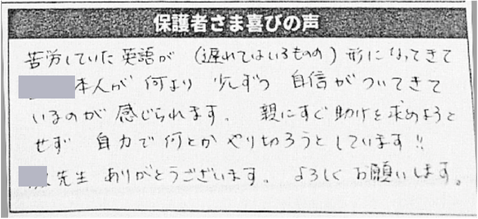 保護者さま喜びの声
苦労していた英語が（遅れてはいるものの）形になってきて
本人が何より少しずつ自信がついてきて
いるのが感じられます。親にすぐ助けを求めようと
せず自力で何とかやり切ろうとしています!!
先生ありがとうございます。よろしくお願いします。